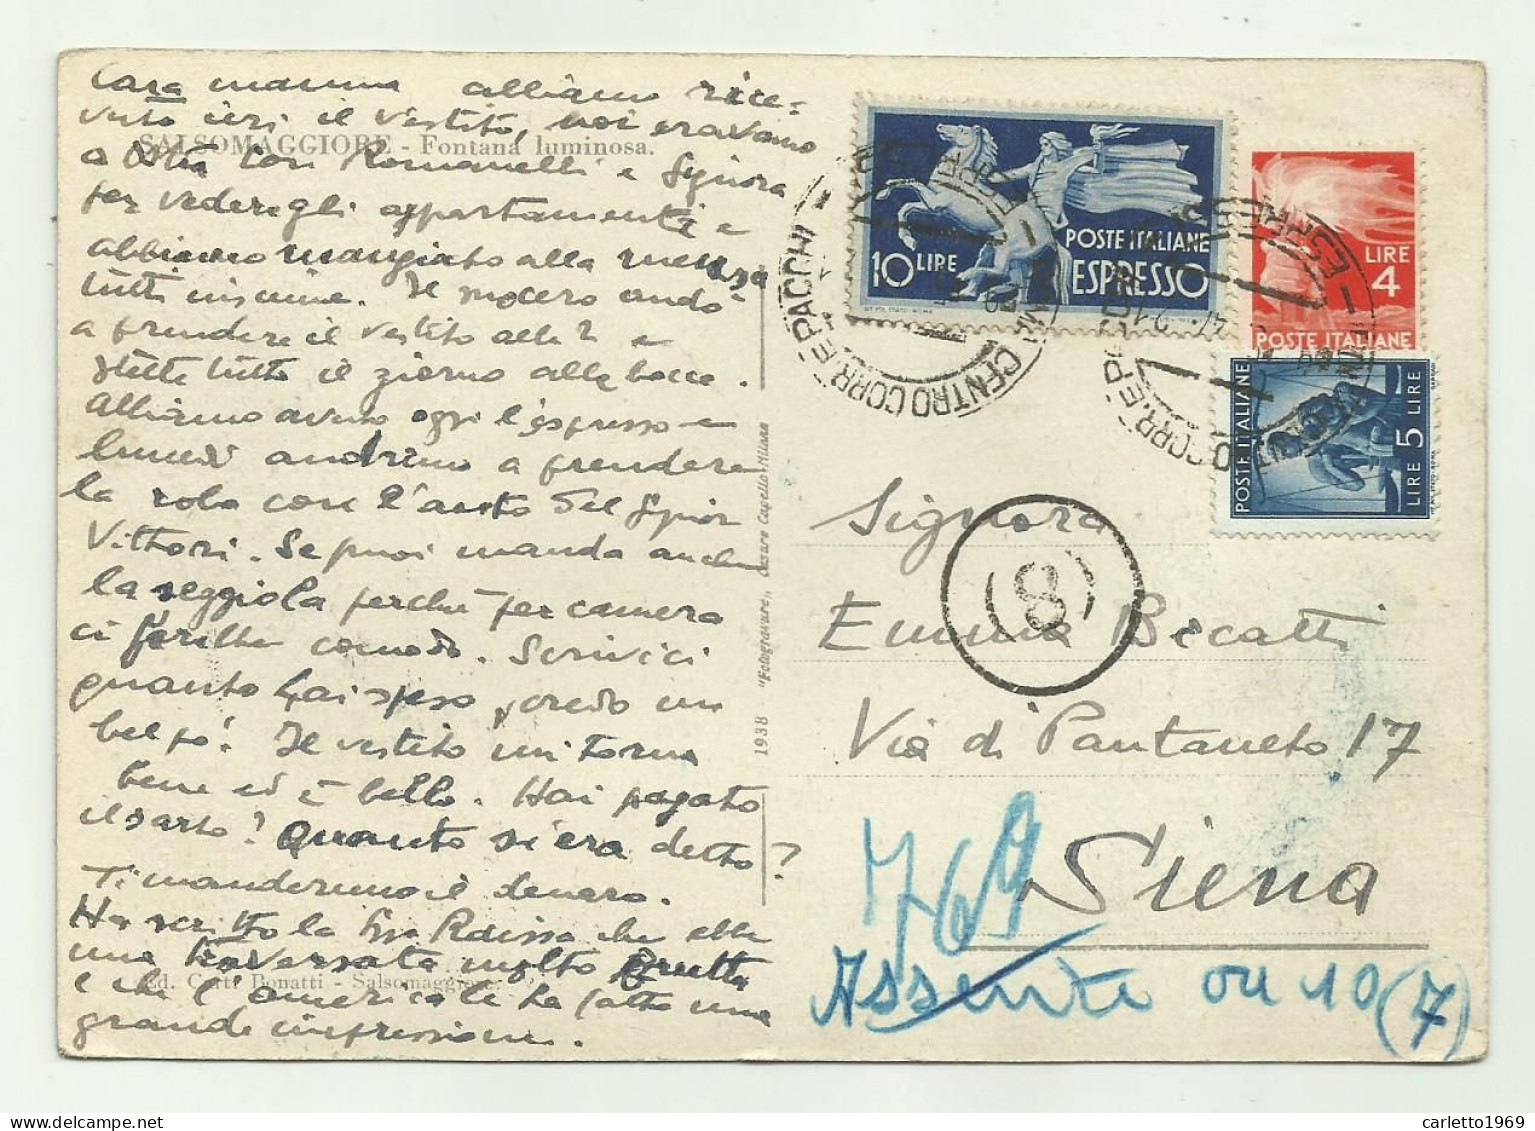 Cara mamma abbiamo rice-
vuto ieri il vestito, noi eravamo
SALSOMAGGIORE - Fontana luminosa.
a Ostia con Romanelli e Signora
per vedere gli appartamenti e
abbiamo mangiato alla mensa
tutti insieme. Il suocero andò
a prendere il vestito alle 2 e
stette tutto il giorno alle bocce.
Abbiamo avuto oggi l'espresso e
lunedì andremo a prendere
la roba con l'auto del Signor
Vittori. Se puoi manda anche
la seggiola perchè per camera
ci farebbe comodo. Scrivici
quanto hai speso, credo un
bel po'. Il vestito mi torna
bene ed è bello. Hai pagato
il sarto? Quanto si era detto?
Ti manderemo il denaro.
Ha scritto la Sig.ra Raissa che ebbe
una traversata molto brutta
Ed. Bonatti - Salsomaggiore.
e che l'America le ha fatto una
grande impressione.
1938 - "Fotogravure" Cesare Capello-Milano
10 LIRE
POSTE ITALIANE
ESPRESSO
LIRE
4
POSTE ITALIANE
POSTE ITALIANE
LIRE 5 LIRE
CENTRO CORR. E PACCHI
ESPRESSI
Signora
(8)
Emma Becatti
Via di Pantaneto 17
Siena
769
Assente ou 10 (7)
carletto1969